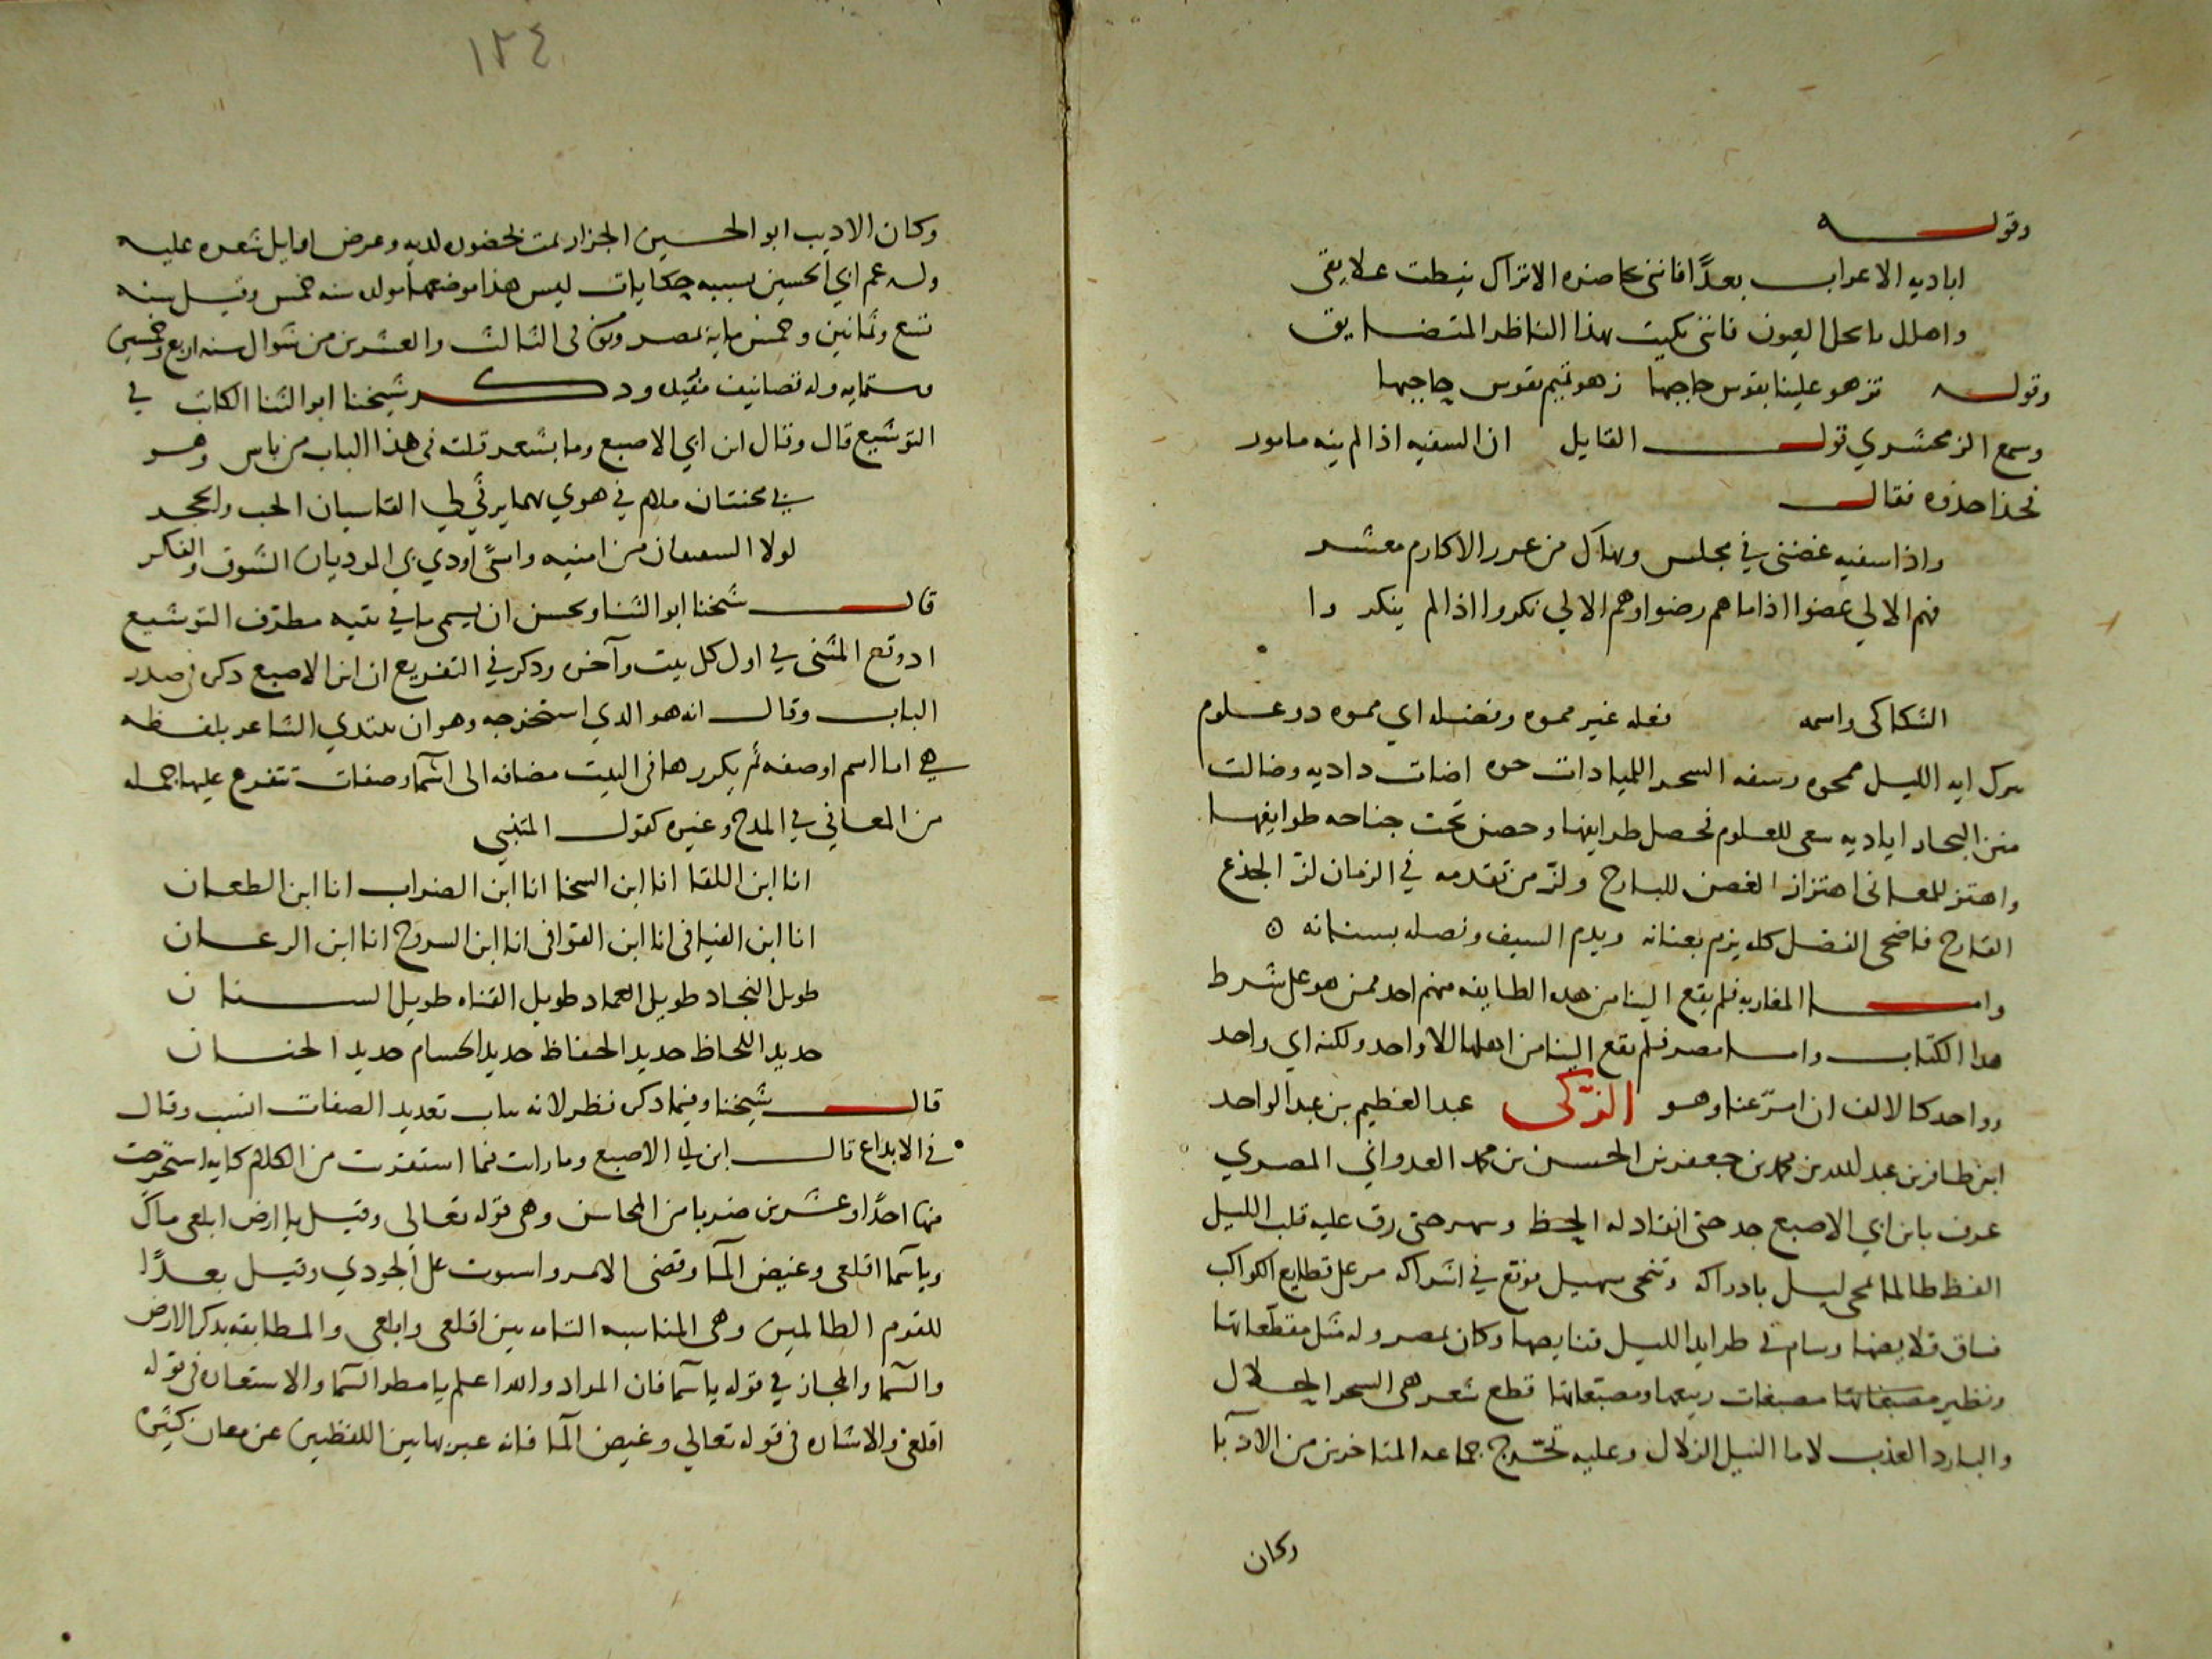 وقولـــــه
اباديه الاعراب بعدًا فانني بحاضره الاتراك نيطت علايقي
واهلل يا نحل العيون فانني بكيت بهذا الناظر المتضايق
وقولـــه تزهو علينا بقوس حاجبها زهو تميم بقوس حاجبها
وسمع الزمخشري قولـــــ القايل ان السفيه اذا لم ينه مامور
فحذا حذوه فقالـــ
واذا سفيه غضني في مجلس وهناك من غرر الاكارم معشر
فهم الالي غضوا اذا ما هم رضوا وهم الالي نكروا اذا لم ينكروا
السكاكى واسمه فعله غير مموه وفضله اي مموه در علوم
ايه الليل ممحوه السحر اضات داديه وضالت
البحار اياديه سعى للعلوم فحصل طرايفها وحصن تحت جناحه طوايفها
واهتز للمعانى اهتزاز الغصن للبارح ولز من تقدمه في الزمان لز الجذع
القارح فاضحى الفضل كله يزم بعنانه ويدم السيف ونصله بسنانه ه
وامـــــا المغاربه فلم يقع الينا من هده الطايفه منهم احد ممن هو على شرط
هدا الكتاب وامـــا مصر فلم يقع الينا من اهلها الا واحد ولكنه اي واحد
وواحد كالالف ان امر عنا وهو الزكى عبد العظيم بن عبد الواحد
ابن ظافر بن عبد الله بن محمد بن جعفر بن الحسن بن محمد العدواني المصري
عرف بابن ابي الاصبع جد حتى انقاد له الحظ وسهر حتى رق عليه قلب الليل
الفظ طالما محى ليل بادراكه وتنحى سهيل موقع في اشراكه مر على قطايع الكواكب
فساق قلايصها وسام في طرايد الليل قنايصها وكان بمصر وله مثل مقطعاتها
ونظير مصبغاتها مصبغات ربيعها ومصبغاتها قطع شعر هى السحر الحلال
والبارد العذب لا ما النيل الزلال وعليه تخرج جماعه المتاخرين من الادبآ
وكان
١٢٤
وكان الاديب ابو الحسين الجزار يمت بالحضور لديه وعرض اوايل شعره عليه
وله عم ابي الحسين بسببه حكايات ليس هذا موضعها مولده سنه خمس وقيل سنه
تسع وثمانين وخمس مايه بمصر وتوفى فى الثالث والعشرين من شوال سنه اربع وخمسين
وستمايه وله تصانيف مفيده ودكـــــر شيخنا ابو الثنا الكاتب في
التوشيع قال وقال ابن ابي الاصبع وما بشعر قلت فى هذا الباب من باس وهـــو
بي محنتان ملام في هوي بهما يرثي لي القاسيان الحب والحجر
لولا الشفيعان من امنيه واسًى اودي بى المرديان الشوق والفكر
قالـــــ شيخنا ابو الثنا ويحسن ان يسمى ما في بيتيه مطرّف التوشيع
اد وقع المثنى في اول كل بيت وآخره ودكر في التفريع ان ابن الاصبع دكر فى صدر
الباب وقالـــ انه هو الدي استخرجه وهو ان يبتدي الشاعر بلفظه
هي اما اسم او صفه ثم يكررها فى البيت مضافه الى اسمآ وصفات تتفرع عليها جمله
من المعاني في المدح وغيره كقولـــ المتنبي
انا ابن اللقا انا ابن السخا انا ابن الضراب انا ابن الطعان
انا ابن الفيافى انا ابن القوافى انا ابن السروج انا ابن الرعان
طويل النجاد طويل العماد طويل القناه طويل الســنان
حديد اللحاظ حديد الحفاظ حديد الحسام حديد الجنان
قالـــــ شيخنا وفيما دكره نظر لانه بباب تعديد الصفات انسب وقال
في الابداع قالـــــ ابن ابي الاصبع وما رايت فيما استقريت من الكلام كايه استخرجت
منها احدًا وعشرين ضربا من المحاسن وهى قوله تعالى وقيل يا ارض ابلعى ماك
وياسما اقلعى وغيض المآ وقضى الامر واستوت على الجودي وقيل بعدًا
للقوم الظالمين وهى المناسبه التامه بين اقلعى وابلعى والمطابقه بدكر الارض
والسما والمجاز في قوله ياسما فان المراد والله اعلم يا مطر السما والاستعاره فى قوله
اقلعى والاشاره فى قوله تعالي وغيض المآ فانه عبر بهاتين اللفظتين عن معان كثيره